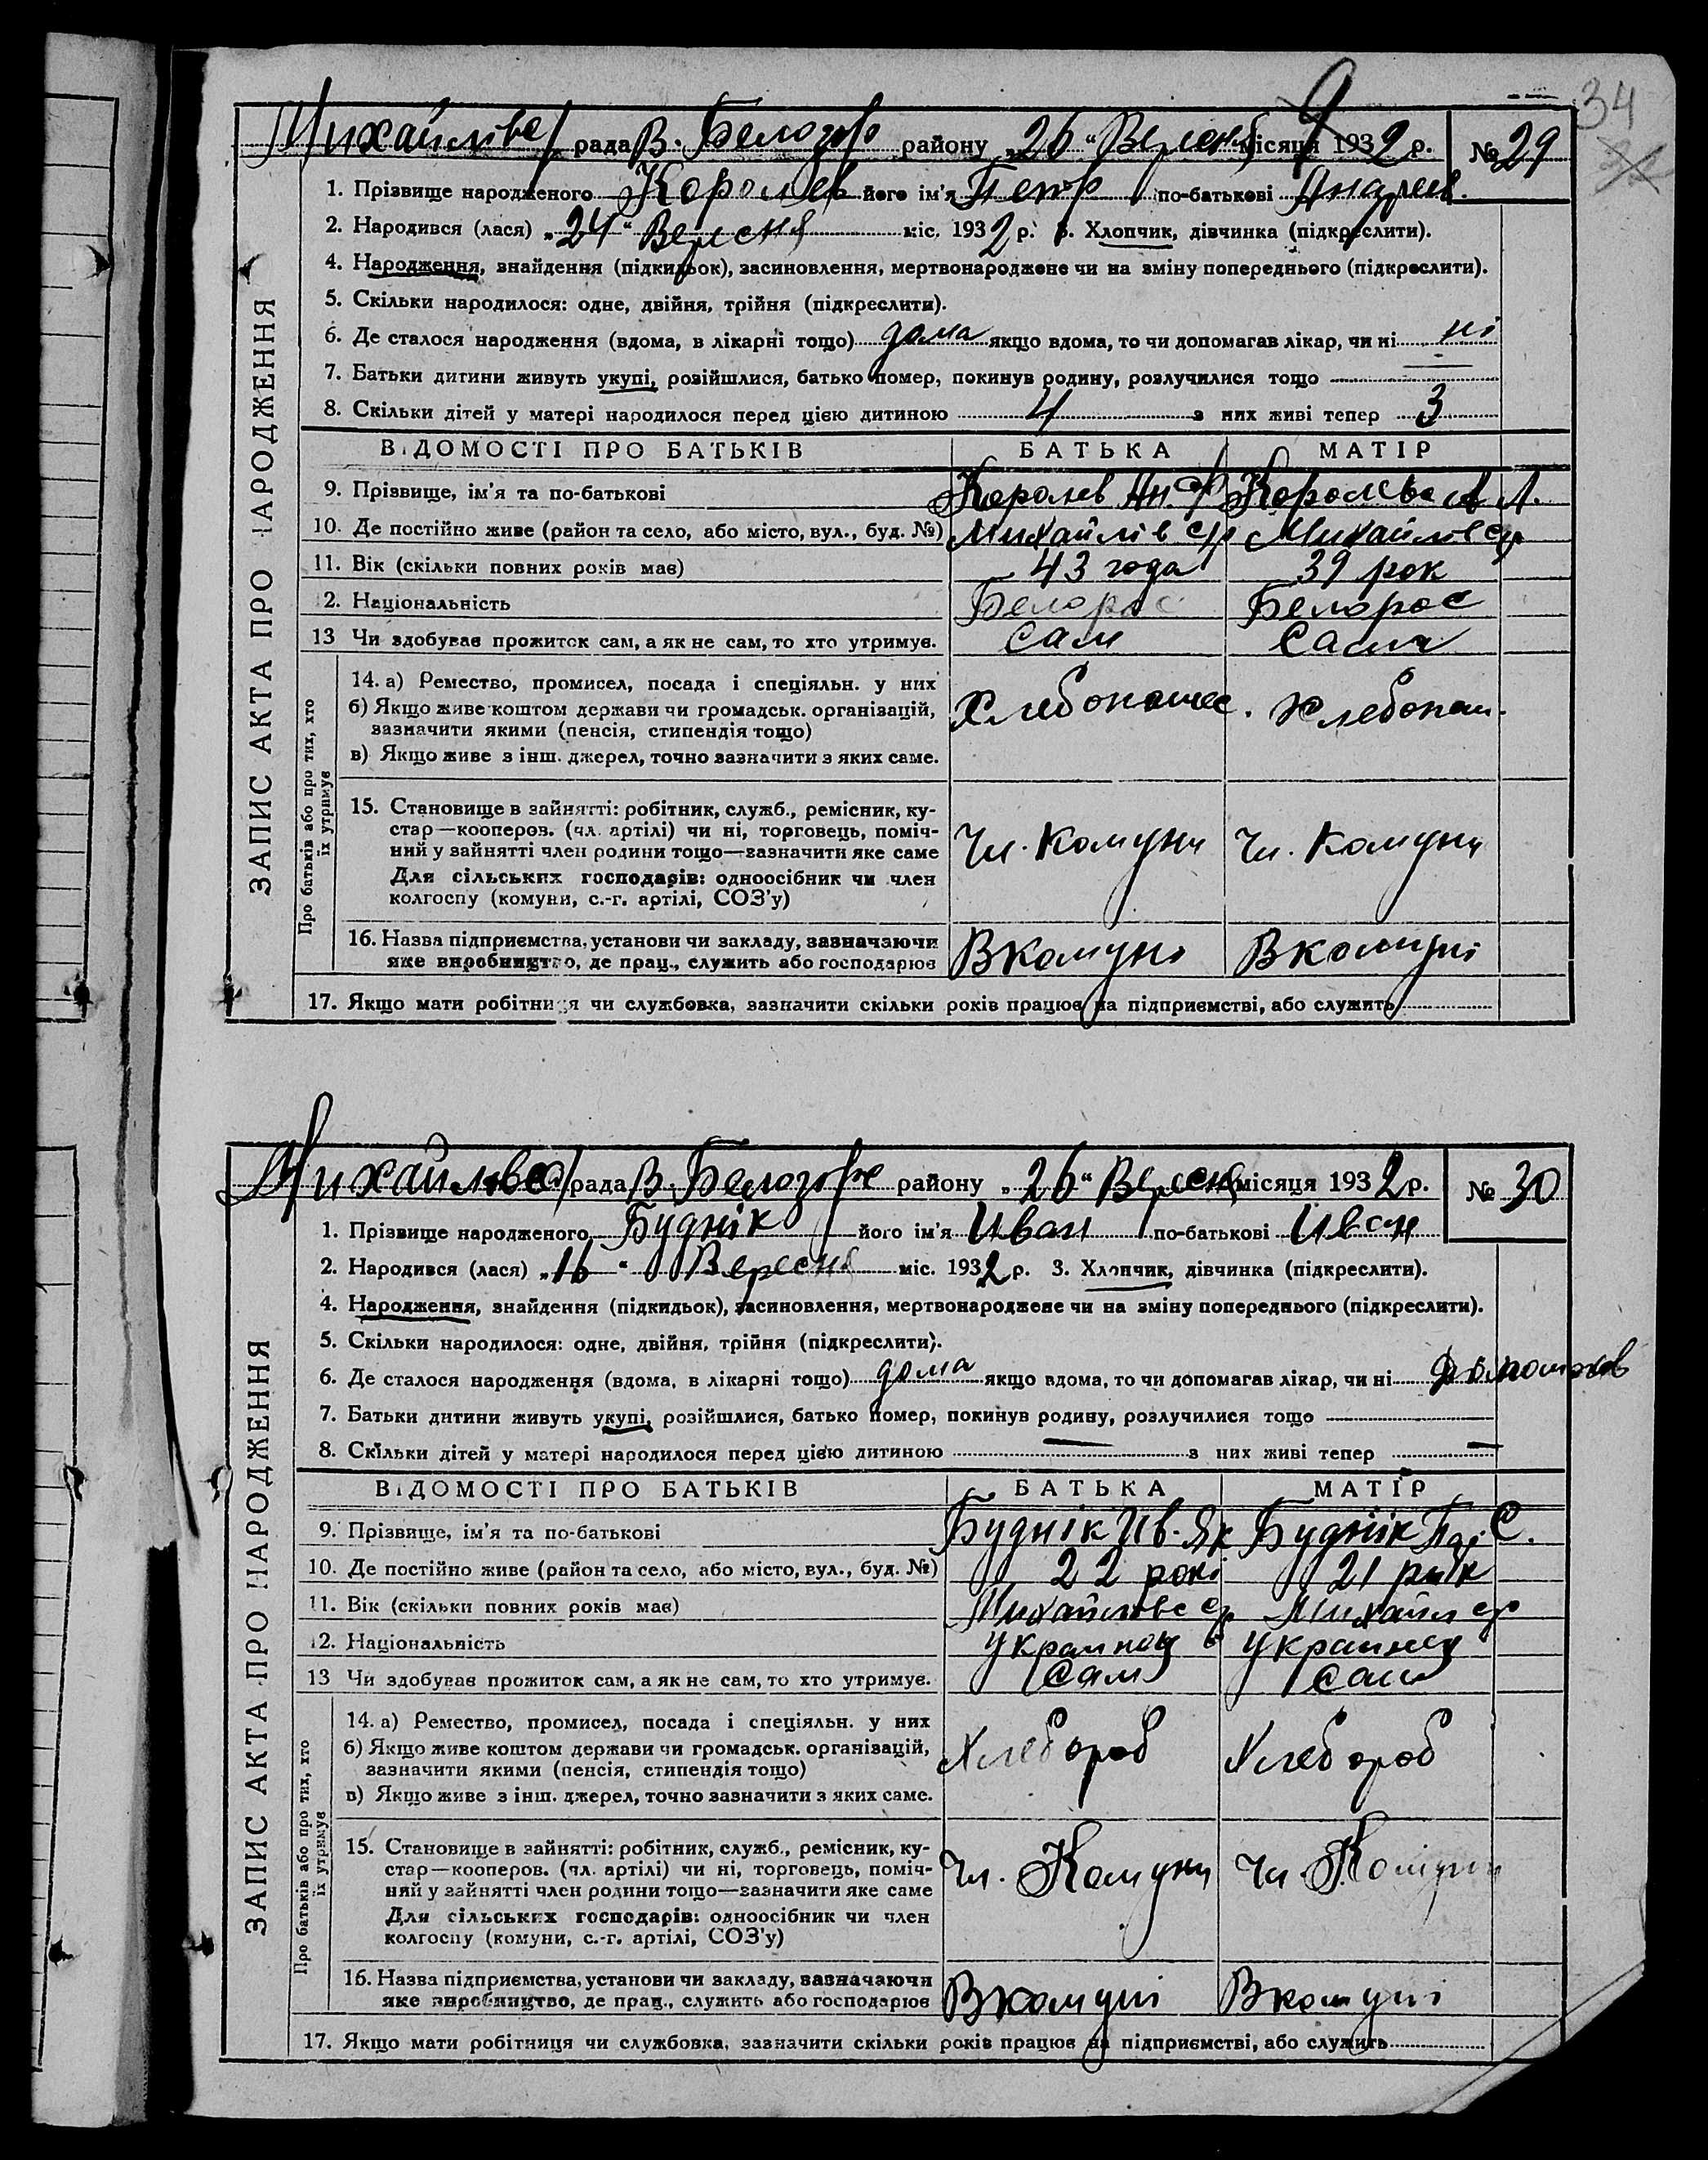 34
9
Михайлівс/р рада В. Белозер району „26“ Вересня місяця 1932 р. № 29
1. Прізвище народженого Королев його ім'я Петр по-батькові Андреев.
2. Народився (лася) „24“ Вересня міс. 1932 р. 3. Хлопчик, дівчинка (підкреслити).
4. Народження, знайдення (підкидьок), засиновлення, мертвонароджене чи на зміну попереднього (підкреслити).
5. Скільки народилося: одне, двійня, трійня (підкреслити).
6. Де сталося народження (вдома, в лікарні тощо) дома якщо вдома, то чи допомагав лікар, чи ні ні
7. Батьки дитини живуть укупі, розійшлися, батько помер, покинув родину, розлучилися тощо
8. Скільки дітей у матері народилося перед цією дитиною 4 з них живі тепер 3
ВІДОМОСТІ ПРО БАТЬКІВ БАТЬКА МАТІР
9. Прізвище, ім'я та по-батькові Королев Ан. Королева А.
10. Де постійно живе (район та село, або місто, вул., буд. №) Михайлів с/р Михайлів с/р
11. Вік (скільки повних років має) 43 года 39 рок
12. Національність Белорос Белорос
13 Чи здобував прожиток сам, а як не сам, то хто утримує. Сам Сама
14. а) Ремество, промисел, посада і спеціяльн. у них
б) Якщо живе коштом держави чи громадськ. організацій, Хлебопашес. Хлебопаш.
зазначити якими (пенсія, стипендія тощо)
в) Якщо живе з інш. джерел, точно зазначити з яких саме.
15. Становище в зайнятті: робітник, служб., ремісник, ку-
стар—кооперов. (чл. артілі) чи ні, торговець, поміч-
ний у зайнятті член родини тощо—зазначити яке саме Чл. Комуни Чл. Комуни
Для сільських господарів: одноосібник чи член
колгоспу (комуни, с.-г. артілі, СОЗ'у)
16. Назва підприємства, установи чи закладу, зазначаючи
яке виробництво, де прац., служить або господарює Вкомуні Вкомуні
17. Якщо мати робітниця чи службовка, зазначити скільки років працює на підприємстві, або служить
ЗАПИС АКТА ПРО НАРОДЖЕННЯ
Про батьків або про тих, хто
їх утримує
Михайлівс/р рада В. Белозер району „26“ Вересня місяця 1932 р. № 30
1. Прізвище народженого Буднік його ім'я Иван по-батькові Иван
2. Народився (лася) „16“ Вересня міс. 1932 р. 3. Хлопчик, дівчинка (підкреслити).
4. Народження, знайдення (підкидьок), засиновлення, мертвонароджене чи на зміну попереднього (підкреслити).
5. Скільки народилося: одне, двійня, трійня (підкреслити).
6. Де сталося народження (вдома, в лікарні тощо) дома якщо вдома, то чи допомагав лікар, чи ні
7. Батьки дитини живуть укупі, розійшлися, батько помер, покинув родину, розлучилися тощо
8. Скільки дітей у матері народилося перед цією дитиною — з них живі тепер —
ВІДОМОСТІ ПРО БАТЬКІВ БАТЬКА МАТІР
9. Прізвище, ім'я та по-батькові Буднік Ив. Як Буднік С.
10. Де постійно живе (район та село, або місто, вул., буд. №) 22 рокі 21 рік
11. Вік (скільки повних років має) Михайлівс ср Михайл ср
12. Національність Украинец Украинец
13 Чи здобував прожиток сам, а як не сам, то хто утримує. Сам Сам
14. а) Ремество, промисел, посада і спеціяльн. у них
б) Якщо живе коштом держави чи громадськ. організацій, Хлебороб Хлебороб
зазначити якими (пенсія, стипендія тощо)
в) Якщо живе з інш. джерел, точно зазначити з яких саме.
15. Становище в зайнятті: робітник, служб., ремісник, ку-
стар—кооперов. (чл. артілі) чи ні, торговець, поміч-
ний у зайнятті член родини тощо—зазначити яке саме Чл. Комуни Чл. Комуни
Для сільських господарів: одноосібник чи член
колгоспу (комуни, с.-г. артілі, СОЗ'у)
16. Назва підприємства, установи чи закладу, зазначаючи
яке виробництво, де прац., служить або господарює Вкомуні Вкомуні
17. Якщо мати робітниця чи службовка, зазначити скільки років працює на підприємстві, або служить
ЗАПИС АКТА ПРО НАРОДЖЕННЯ
Про батьків або про тих, хто
їх утримує